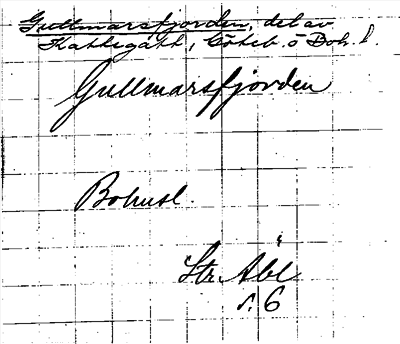 Gullmarsfjorden, del av
Kattegatt, Göteb. o Boh. l.
Gullmarsfjorden
Bohusl.
Str. Abl
s. 6